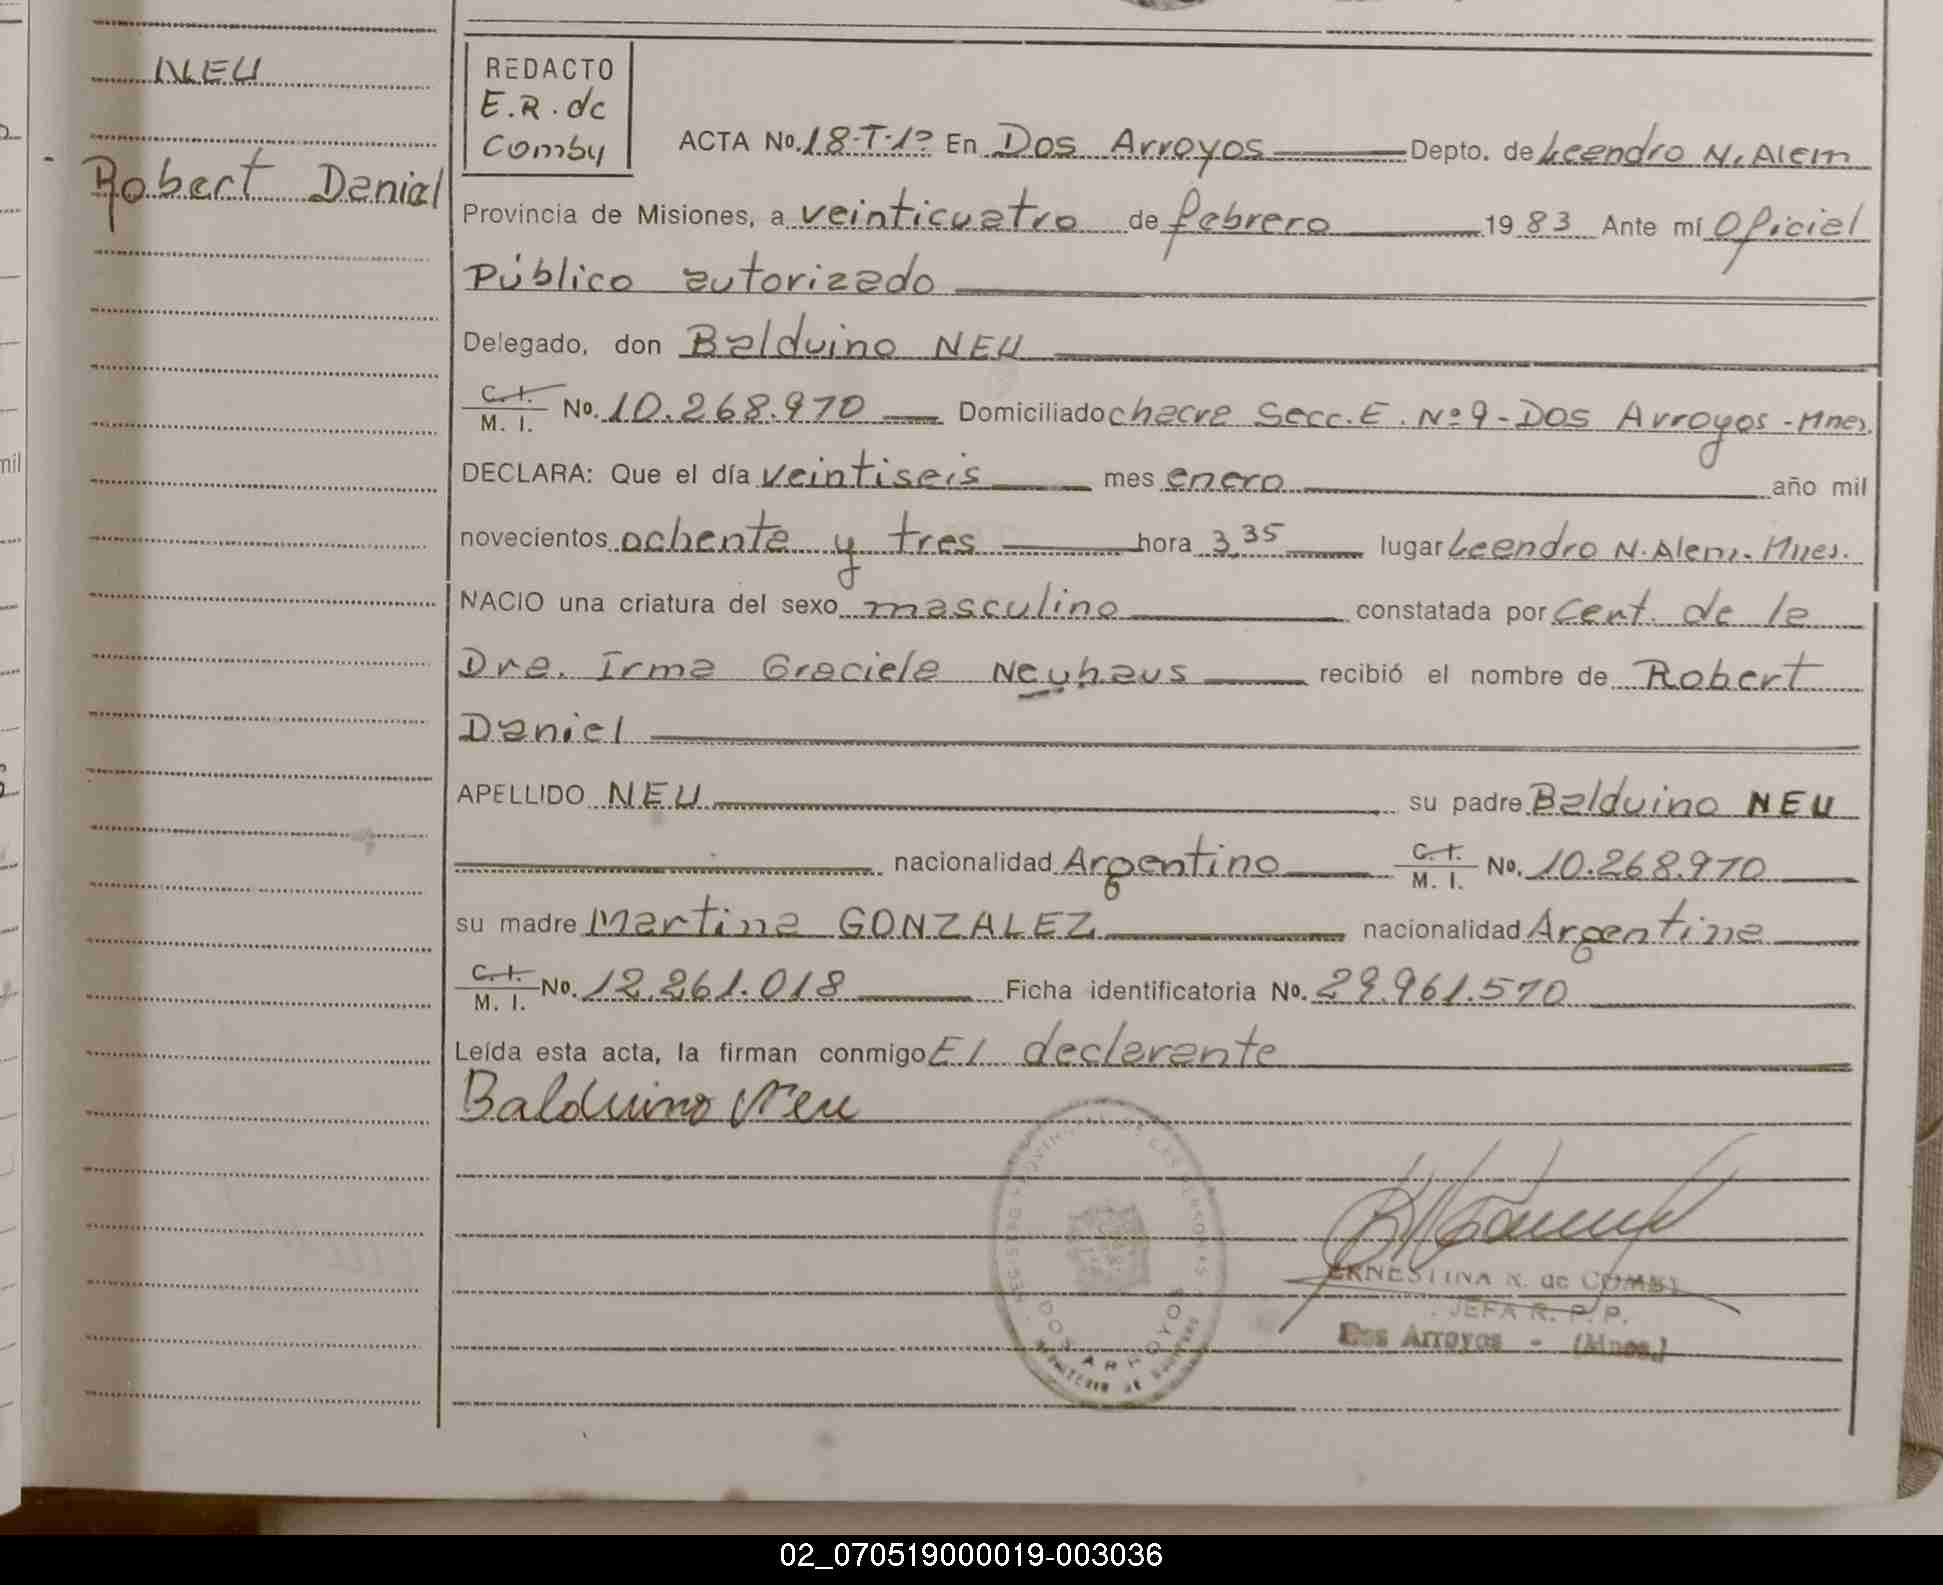 NEU
Robert Daniel
REDACTO
E.R. de
Comby
ACTA No. 18-T-1º En Dos Arroyos Depto. de Leandro N. Alem
Provincia de Misiones, a veinticuatro de febrero 1983 Ante mí Oficial
Público autorizado
Delegado, don Balduino NEU
C.I. M. I. No. 10.268.970 Domiciliado chacra Secc. E. Nº 9 - Dos Arroyos - Mnes.
DECLARA: Que el día veintiseis mes enero año mil
novecientos ochenta y tres hora 3,35 lugar Leandro N. Alem. Mnes.
NACIO una criatura del sexo masculino constatada por Cert. de la
Dra. Irma Graciela Neuhaus recibió el nombre de Robert
Daniel
APELLIDO NEU su padre Balduino NEU
nacionalidad Argentino C.I. M. I. No. 10.268.970
su madre Martina GONZALEZ nacionalidad Argentina
C.I. M. I. No. 12.261.018 Ficha identificatoria No. 29.961.570
Leída esta acta, la firman conmigo El declarante
Balduino Neu
DOS ARROYOS
ERNESTINA R. de COMBY
JEFA R. P. P.
Dos Arroyos - (Mnes.)
mil
02_070519000019-003036